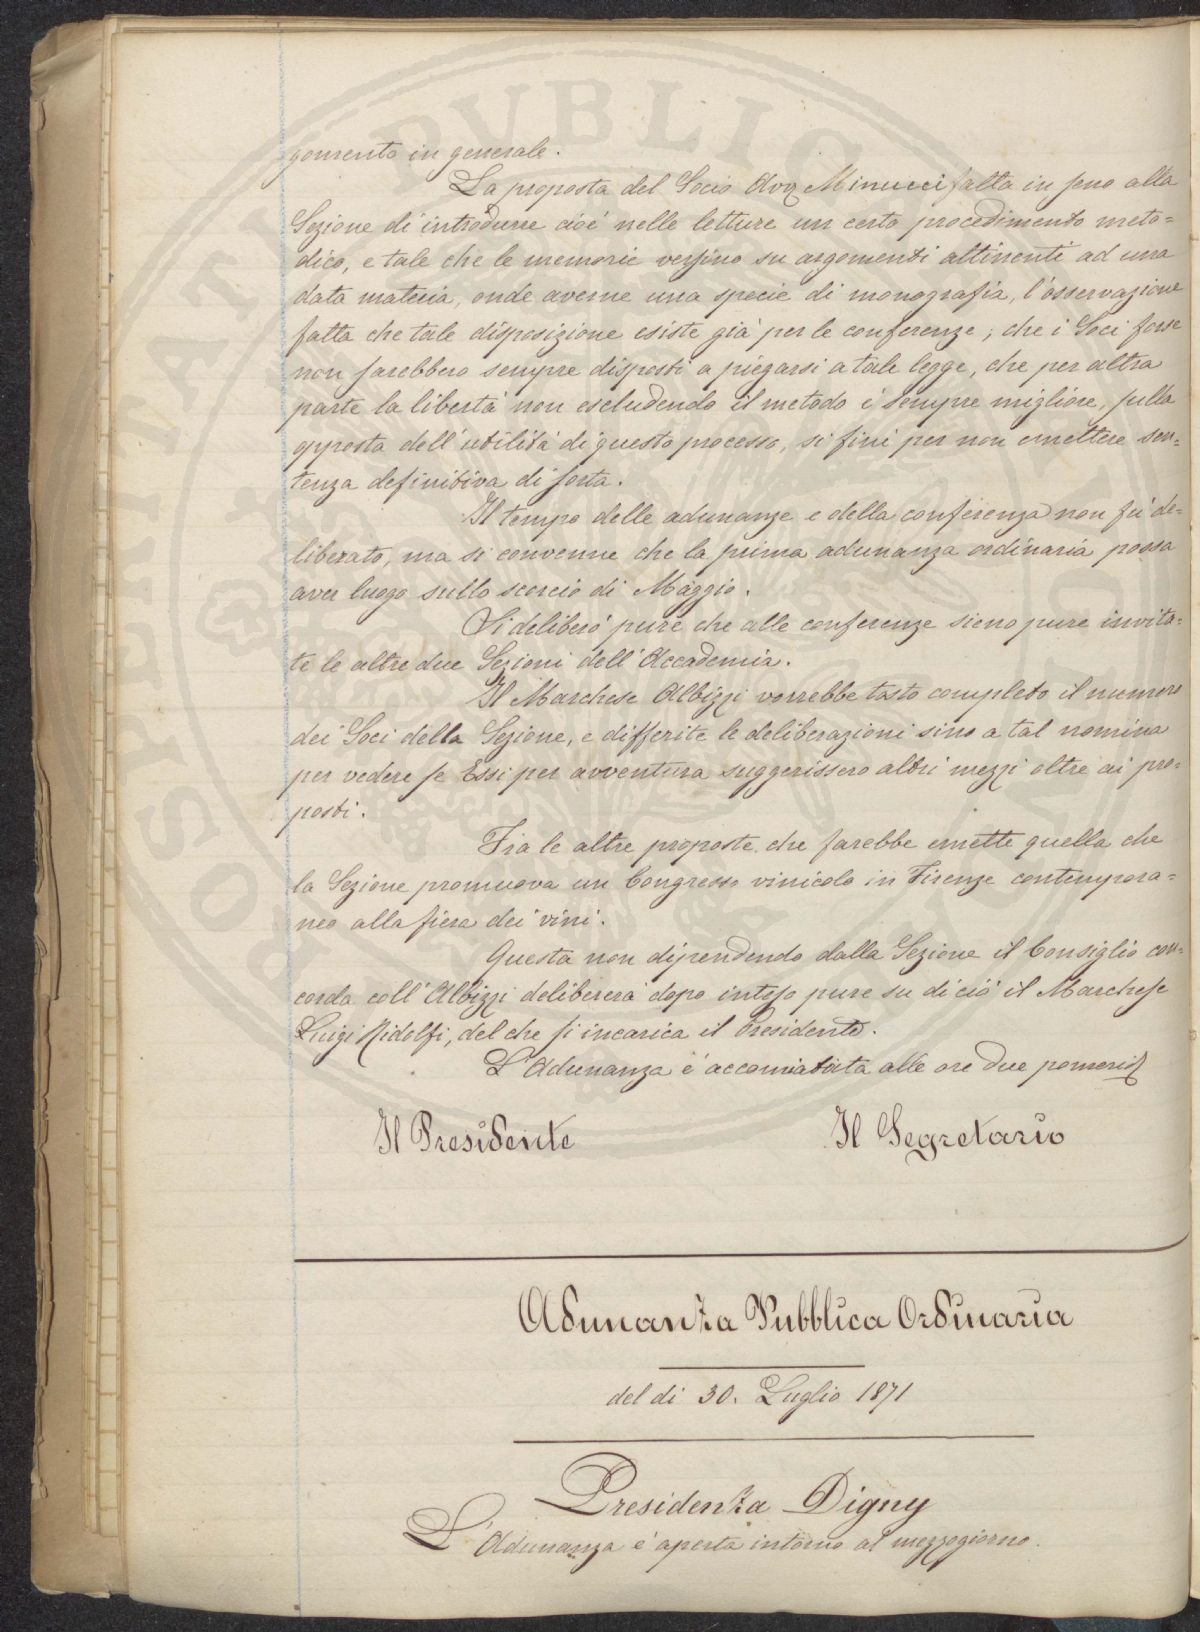 gomento in generale.
La proposta del Socio Avv Minucci fatta in seno alla
Sezione di introdurre cioè nelle letture un certo procedimento meto=
dico, e tale che le memorie versino su argomenti attinenti ad una
data materia, onde averne una specie di monografia, l'osservazione
fatta che tale disposizione esiste già per le conferenze, che i Soci forse
non sarebbero sempre disposti a piegarsi a tale legge, che per altra
parte la libertà non escludendo il metodo è sempre migliore, sulla
opposta dell'utilità di questo processo, si finì per non emettere sen=
tenza definitiva di sorta.
Il tempo delle adunanze e della conferenza non fù de=
liberato, ma si convenne che la prima adunanza ordinaria possa
aver luogo sullo scorcio di Maggio.
Si deliberò pure che alle conferenze sieno pure invita=
te le altre due Sezioni dell'Accademia.
Il Marchese Albizzi vorrebbe tosto completo il numero
dei Soci della Sezione, e differite le deliberazioni sino a tal nomina
per vedere se Essi per avventura suggerissero altri mezzi oltre ai pro=
posti.
Fra le altre proposte che farebbe emette quella che
la Sezione promuova un Congresso vinicolo in Firenze contempora=
neo alla fiera dei vini.
Questa non dipendendo dalla Sezione il Consiglio con=
corda coll'Albizzi delibererà dopo inteso pure su di ciò il Marchese
Luigi Ridolfi, del che si incarica il Presidente.
L'Adunanza è accomiatata alle ore due pomerid
Il Presidente
Il Segretario
Adunanza Pubblica Ordinaria
del di 30. Luglio 1871
Presidenza Digny
L'Adunanza è aperta intorno al mezzogiorno.